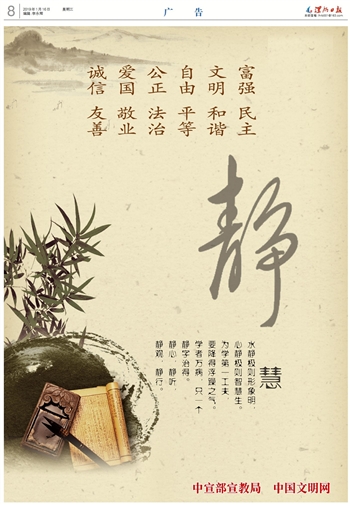 8
2019年1月16日 星期三
广 告
漯河日报
富强 民主
文明 和谐
自由 平等
公正 法治
爱国 敬业
诚信 友善
静
慧
水静极则形象明，
心静极则智慧生。
为学第一工夫，
要降得浮躁之气。
学者万病，只一个
静字治得。
静心，静听，
静观，静行。
中宣部宣教局 中国文明网